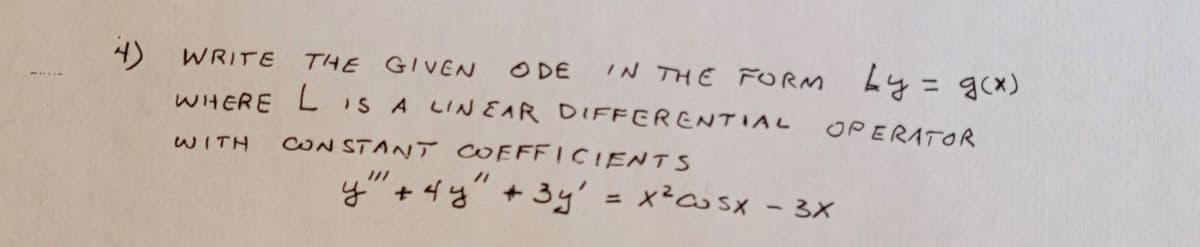 4) WRITE THE GIVEN ODE IN THE FORM Ly = g(x)
WHERE L IS A LINEAR DIFFERENTIAL OPERATOR
WITH CONSTANT COEFFICIENTS
y''' + 4y'' + 3y' = x²cosx - 3x